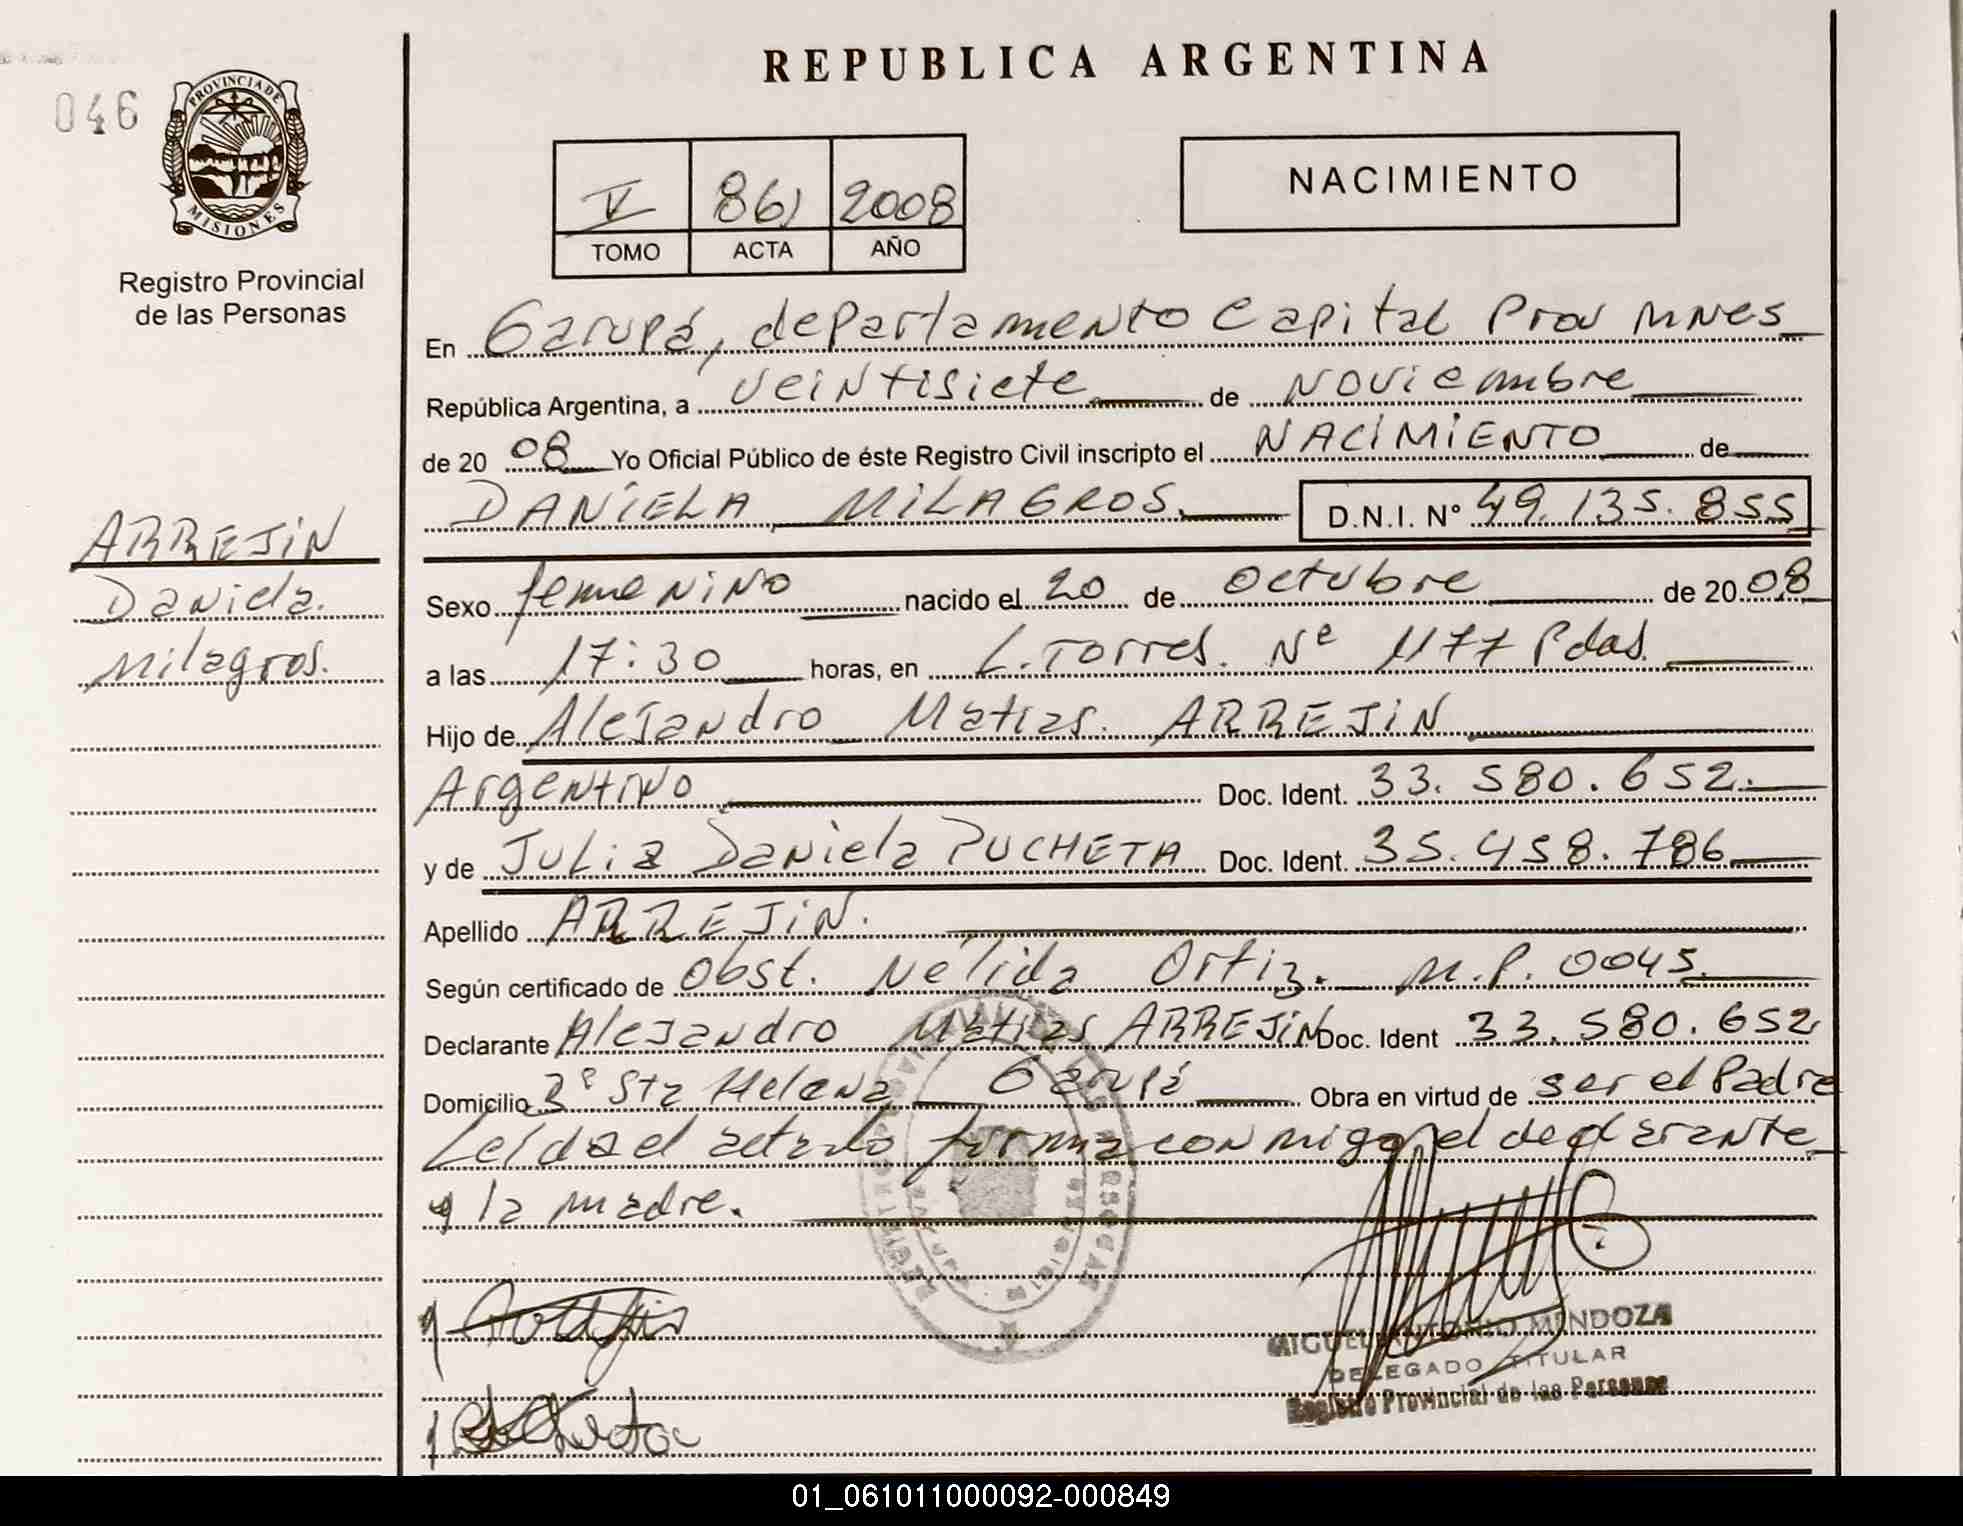 REPUBLICA ARGENTINA
046
PROVINCIA DE
MISIONES
Registro Provincial
de las Personas
V 861 2008
TOMO ACTA AÑO
NACIMIENTO
En Garupá, departamento Capital Prov Mnes
República Argentina, a veintisiete de Noviembre
de 20 08 Yo Oficial Público de éste Registro Civil inscripto el NACIMIENTO de
DANIELA MILAGROS. D.N.I. Nº 49.135.855
ARREJIN
Daniela.
Milagros.
Sexo femenino nacido el 20 de Octubre de 20 08
a las 17:30 horas, en L. Torres. Nº 1177 Pdas.
Hijo de Alejandro Matias. ARREJIN
Argentino Doc. Ident. 33.580.652.
y de Julia Daniela PUCHETA Doc. Ident. 35.458.786
Apellido ARREJIN.
Según certificado de Obst. Nélida Ortiz. M.P. 0045.
Declarante Alejandro Matias ARREJIN Doc. Ident 33.580.652
Domicilio Sta Helena Garupá Obra en virtud de ser el Padre
Leída el acta lo firma conmigo el declarante
y la madre.
MIGUEL ANTONIO MENDOZA
DELEGADO TITULAR
Registro Provincial de las Personas
01_061011000092-000849